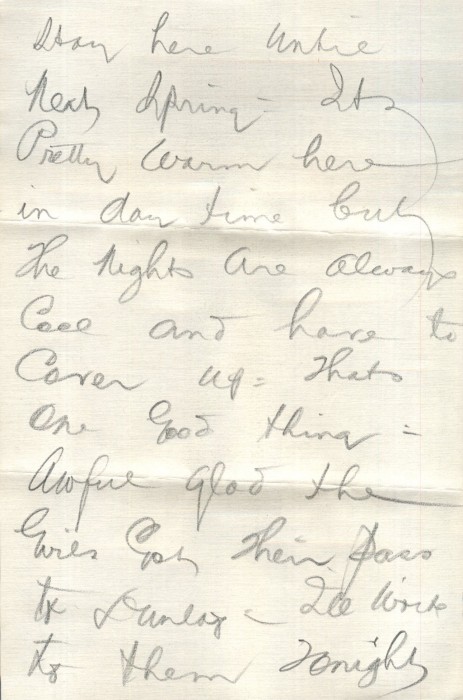 Stay here until
Next Spring = Its
Pretty Warm here
in day time but
the Nights are always
Cool and have to
Cover up = Thats
One Good thing =
Awful glad the
Girls Got Their pass
to Dunlap = Ile Write
to them Tonight